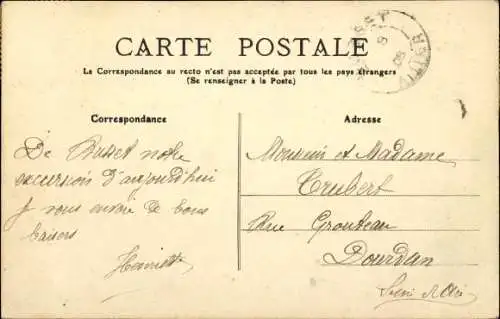 CARTE POSTALE
La Correspondance au recto n'est pas acceptée par tous les pays étrangers
(Se renseigner à la Poste)
Correspondance
De Busset notre
excursion d'aujourd'hui
je vous envoie de bons
baisers
Henriette
Adresse
Monsieur et Madame
Trubert
Rue Grouteau
Dourdan
Seine et Oise
BUSSET
ALLIER